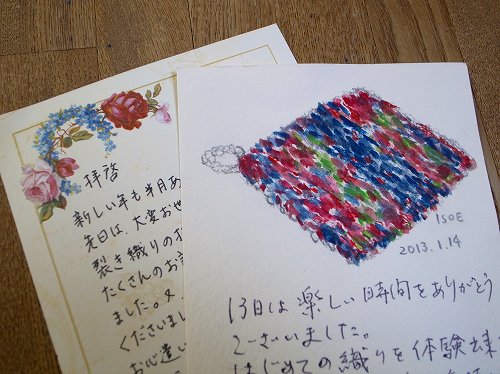 拝啓
新しい年も半月あ
先日は、大変お世
裂き織りのお
たくさんのお
ました。又
くださいまし
お心遣い
ISOE
2013.1.14
13日は楽しい時間をありがとう
ございました。
はじめての織りを体験出来